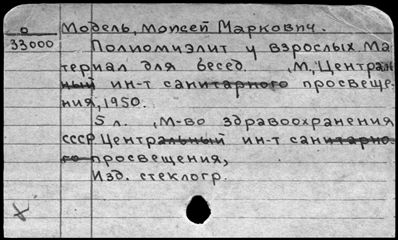 О
33000
Модель, Моисей Маркович.
Полиомиэлит у взрослых. Ма
териал для бесед. , М, Централь
ный ин-т санитарного просвеще-
ния, 1950.
5 л. , М-во здравоохранения
СССР Центральный ин-т санитарно-
го просвещения,
Изд. стеклогр.